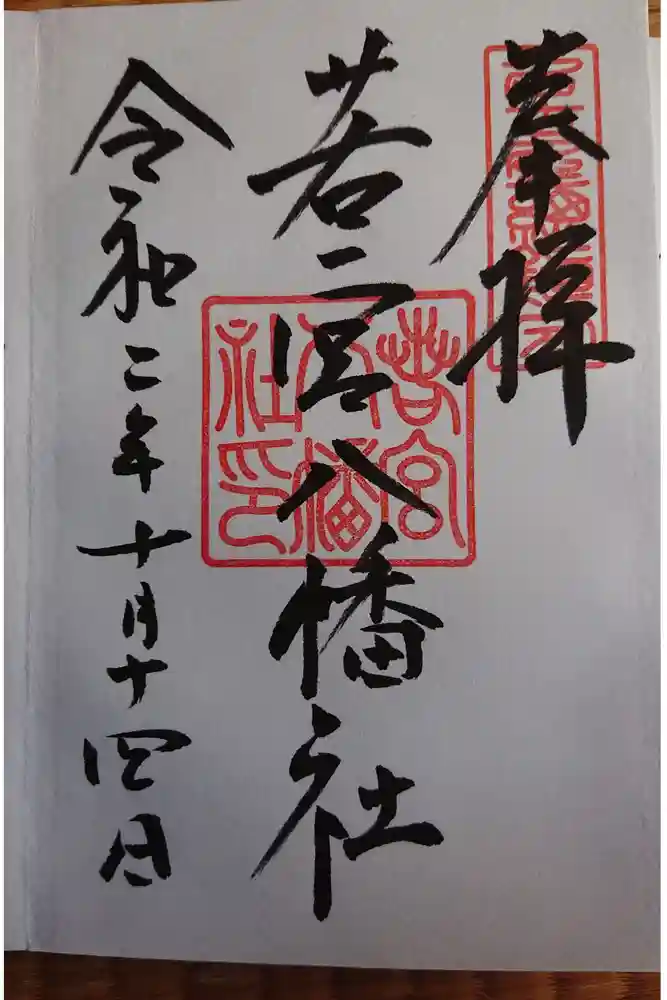 奉拝
若宮八幡社
令和二年十月十四日
若宮八幡社印